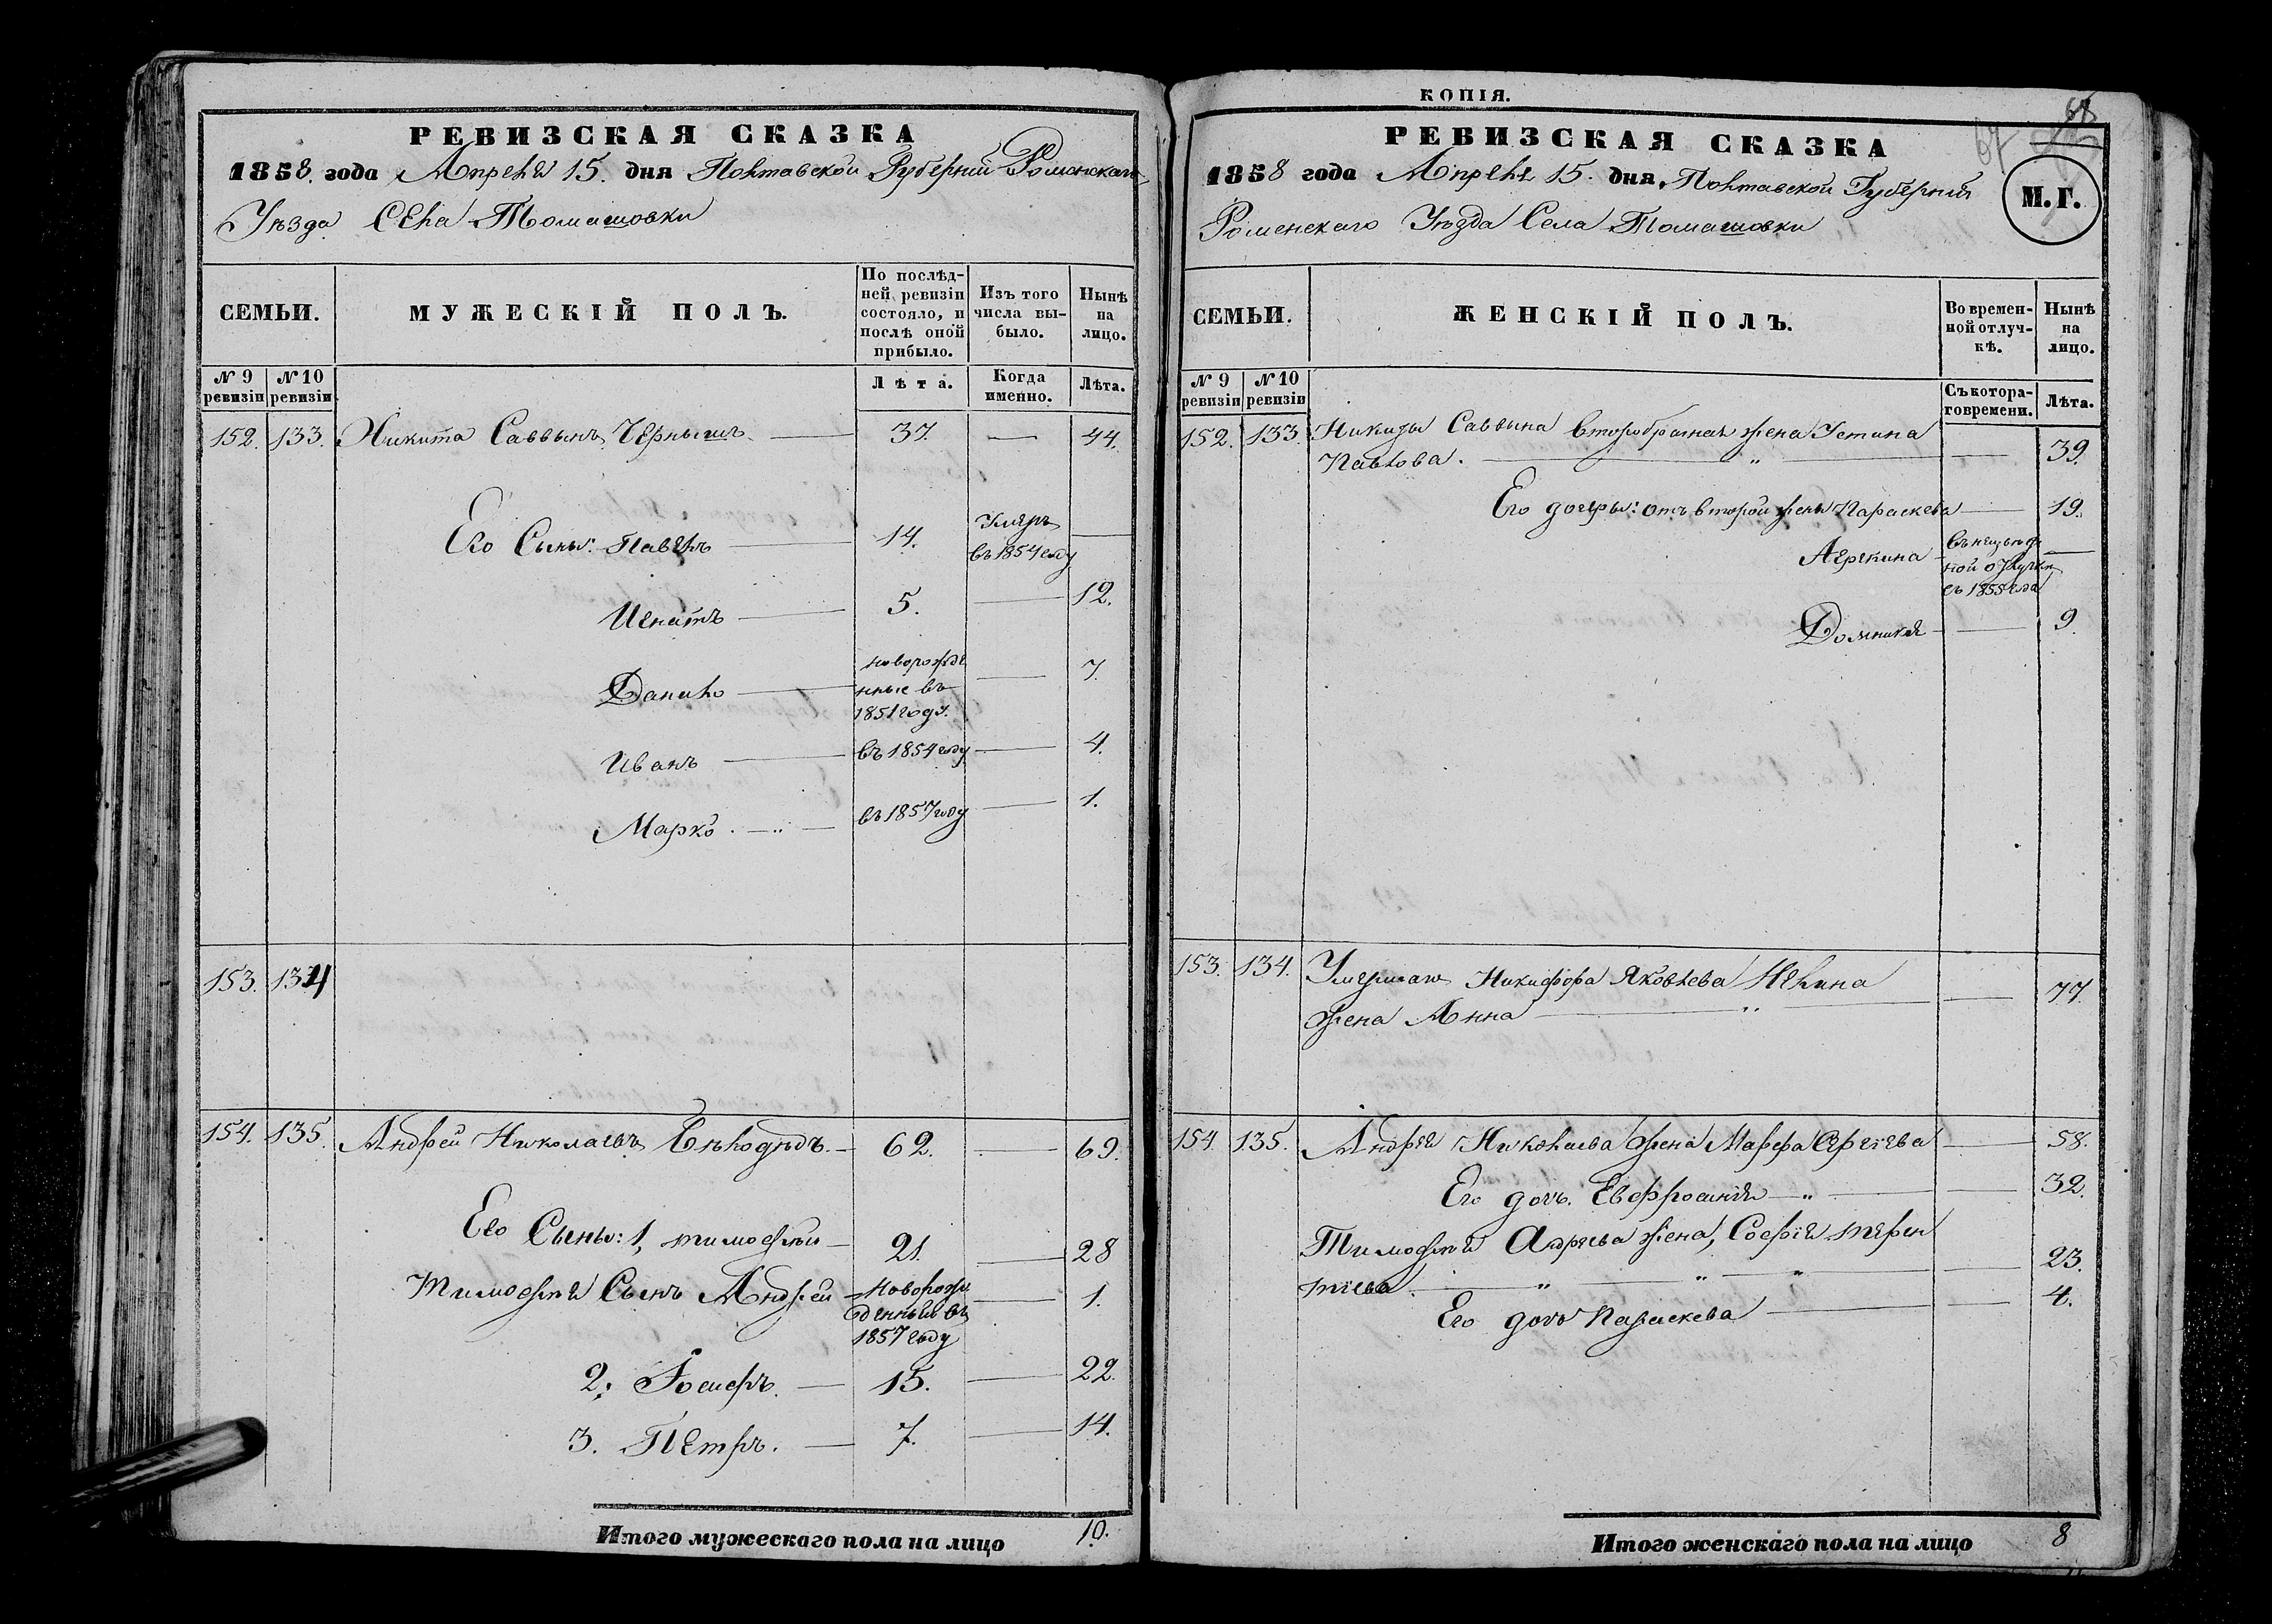 РЕВИЗСКАЯ СКАЗКА
1858. года Апреля 15. дня Полтавской Губерніи Роменскаго
Уѣзда Села Томашовки
СЕМЬИ.
МУЖЕСКІЙ ПОЛЪ.
По послѣд-
ней ревизіи
состояло, и
послѣ оной
прибыло.
Изъ того
числа вы-
было.
Нынѣ
на
лицо.
№ 9
ревизіи
№ 10
ревизіи
Лѣта.
Когда
именно.
Лѣта.
152. 133. Никита Саввинъ Чернышъ. 37. — 44.
Его Сыны: Павелъ 14. Умеръ
въ 1854 году
Игнатъ 5. — 12.
Данило новорожде
нные въ
1851 году. — 7.
Иванъ въ 1854 году — 4.
Марко въ 1857 году — 1.
153. 134
154. 135. Андрей Николаевъ 62. — 69.
Его Сыны: 1, тимофѣй 21. — 28
Тимофѣя Сынъ Андрей Новорож
денный въ
1857 году — 1.
2; Іосифъ. 15. — 22.
3. Петръ. 7. — 14.
Итого мужескаго пола на лицо 10.
КОПІЯ.
67 68
РЕВИЗСКАЯ СКАЗКА
1858 года Апреля 15. дня Полтавской Губерніи
Роменскаго Уѣзда Села Томашовки
М.Г.
СЕМЬИ.
ЖЕНСКІЙ ПОЛЪ.
Во времен-
ной отлуч-
кѣ.
Нынѣ
на
лицо.
№ 9
ревизіи
№ 10
ревизіи
Съ котора-
го времени.
Лѣта.
152. 133. Никиты Саввина второбрачная жена Устина
Павлова. — 39.
Его дочеры: отъ второй жены Параскева — 19.
въ
ной отлучки
съ 1855 года
Домникія — 9.
153. 134. Умершаго Никифора Яковлева
жена Анна — 77.
154. 135. Андрея Николаева жена Марфа Сергіева — 58.
Его дочь. Евфросинія — 32.
Тимофѣя Андреева жена, Софія терен
тіева. — 23.
Его дочь Параскева — 4.
Итого женскаго пола на лицо 8